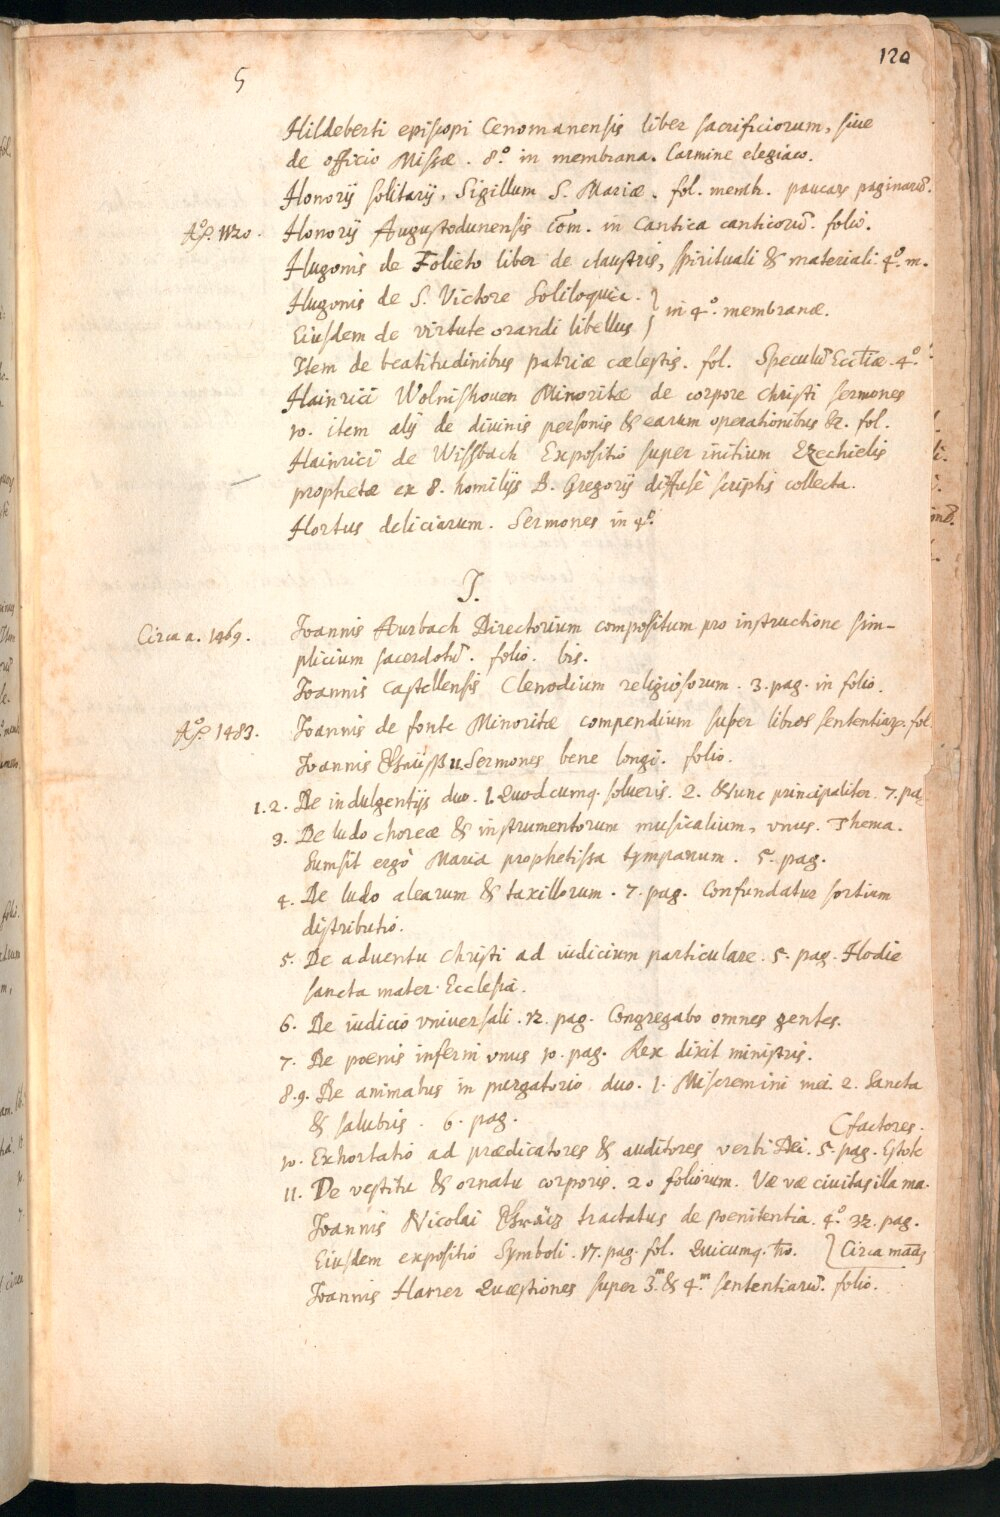 120
5
Hildeberti episcopi Cenomanensis liber sacrificiorum, siue
de officio Missæ. 8.º in membrana. Carmine elegiaco.
Honorij solitarij, Sigillum S. Mariæ. fol. memb. paucar paginarū.
Aº. 1120. Honorij Augustodunensis Com. in Cantica canticorū. folio.
Hugonis de Folieto liber de claustris, spirituali & materiali. 4.º m.
Hugonis de S. Victore Soliloquia. } in 4.º membranæ.
Eiusdem de virtute orandi libellus
Item de beatitudinibus patriæ cælestis. fol. Speculū Eccliæ. 4.º
Hainrici Wolnishouen Minoritæ de corpore Christi sermones
10. item alij de diuinis personis & earum operationibus &c. fol.
Hainrici de Wissbach Expositio super initium Ezechielis
prophetæ ex 8. homilijs B. Gregorij diffusè scriptis collecta.
Hortus deliciarum. Sermones in 4.º
I.
Circa a. 1469. Joannis Aurbach Directorium compositum pro instructione sim-
plicium sacerdotū. folio. bis.
Joannis Castellensis Clenodium religiosorum. 3. pag. in folio.
Aº. 1483. Joannis de fonte Minoritæ compendium super libros sententiar. fol.
Joannis Sermones bene longi. folio.
1. 2. De indulgentijs duo. 1. Quodcumq. solueris. 2. Nunc principaliter. 7. pag
3. De ludo choreæ & instrumentorum musicalium, vnus. Thema.
Sumsit ergò Maria prophetissa tympanum. 5. pag.
4. De ludo alearum & taxillorum. 7. pag. Confundatur sortium
distributio.
5. De aduentu Christi ad iudicium particulare. 5. pag. Hodie
sancta mater Ecclesia.
6. De iudicio vniuersali. 12. pag. Congregabo omnes gentes.
7. De poenis inferni vnus 10. pag. Rex dixit ministris.
8. 9. De animabus in purgatorio duo. 1. Miseremini mei. 2. Sancta
& salubris. 6. pag.
10. Exhortatio ad prædicatores & auditores verbi Dei. 5. pag. Estote
(factores.
11. De vestitu & ornatu corporis. 20 foliorum. Væ væ ciuitas illa ma.
Joannis Nicolai tractatus de poenitentia. 4.º 32. pag.
Eiusdem expositio Symboli. 17. pag. fol. Quicumq. } Circa
Joannis Harrer Quæstiones super 3.m & 4.m sententiarū. folio.